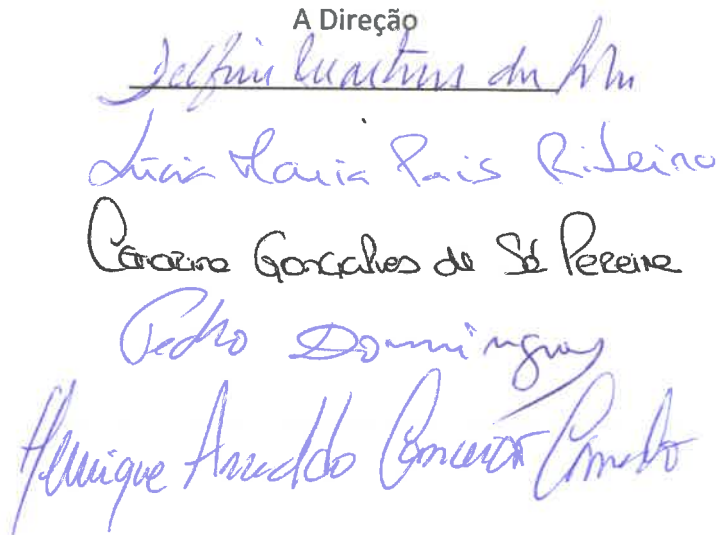 A Direção
Delfim Martins da
Lúcia Maria Pais Ribeiro
Gonçalves de Sá Pereira
Pedro Domingues
Henrique Arnaldo